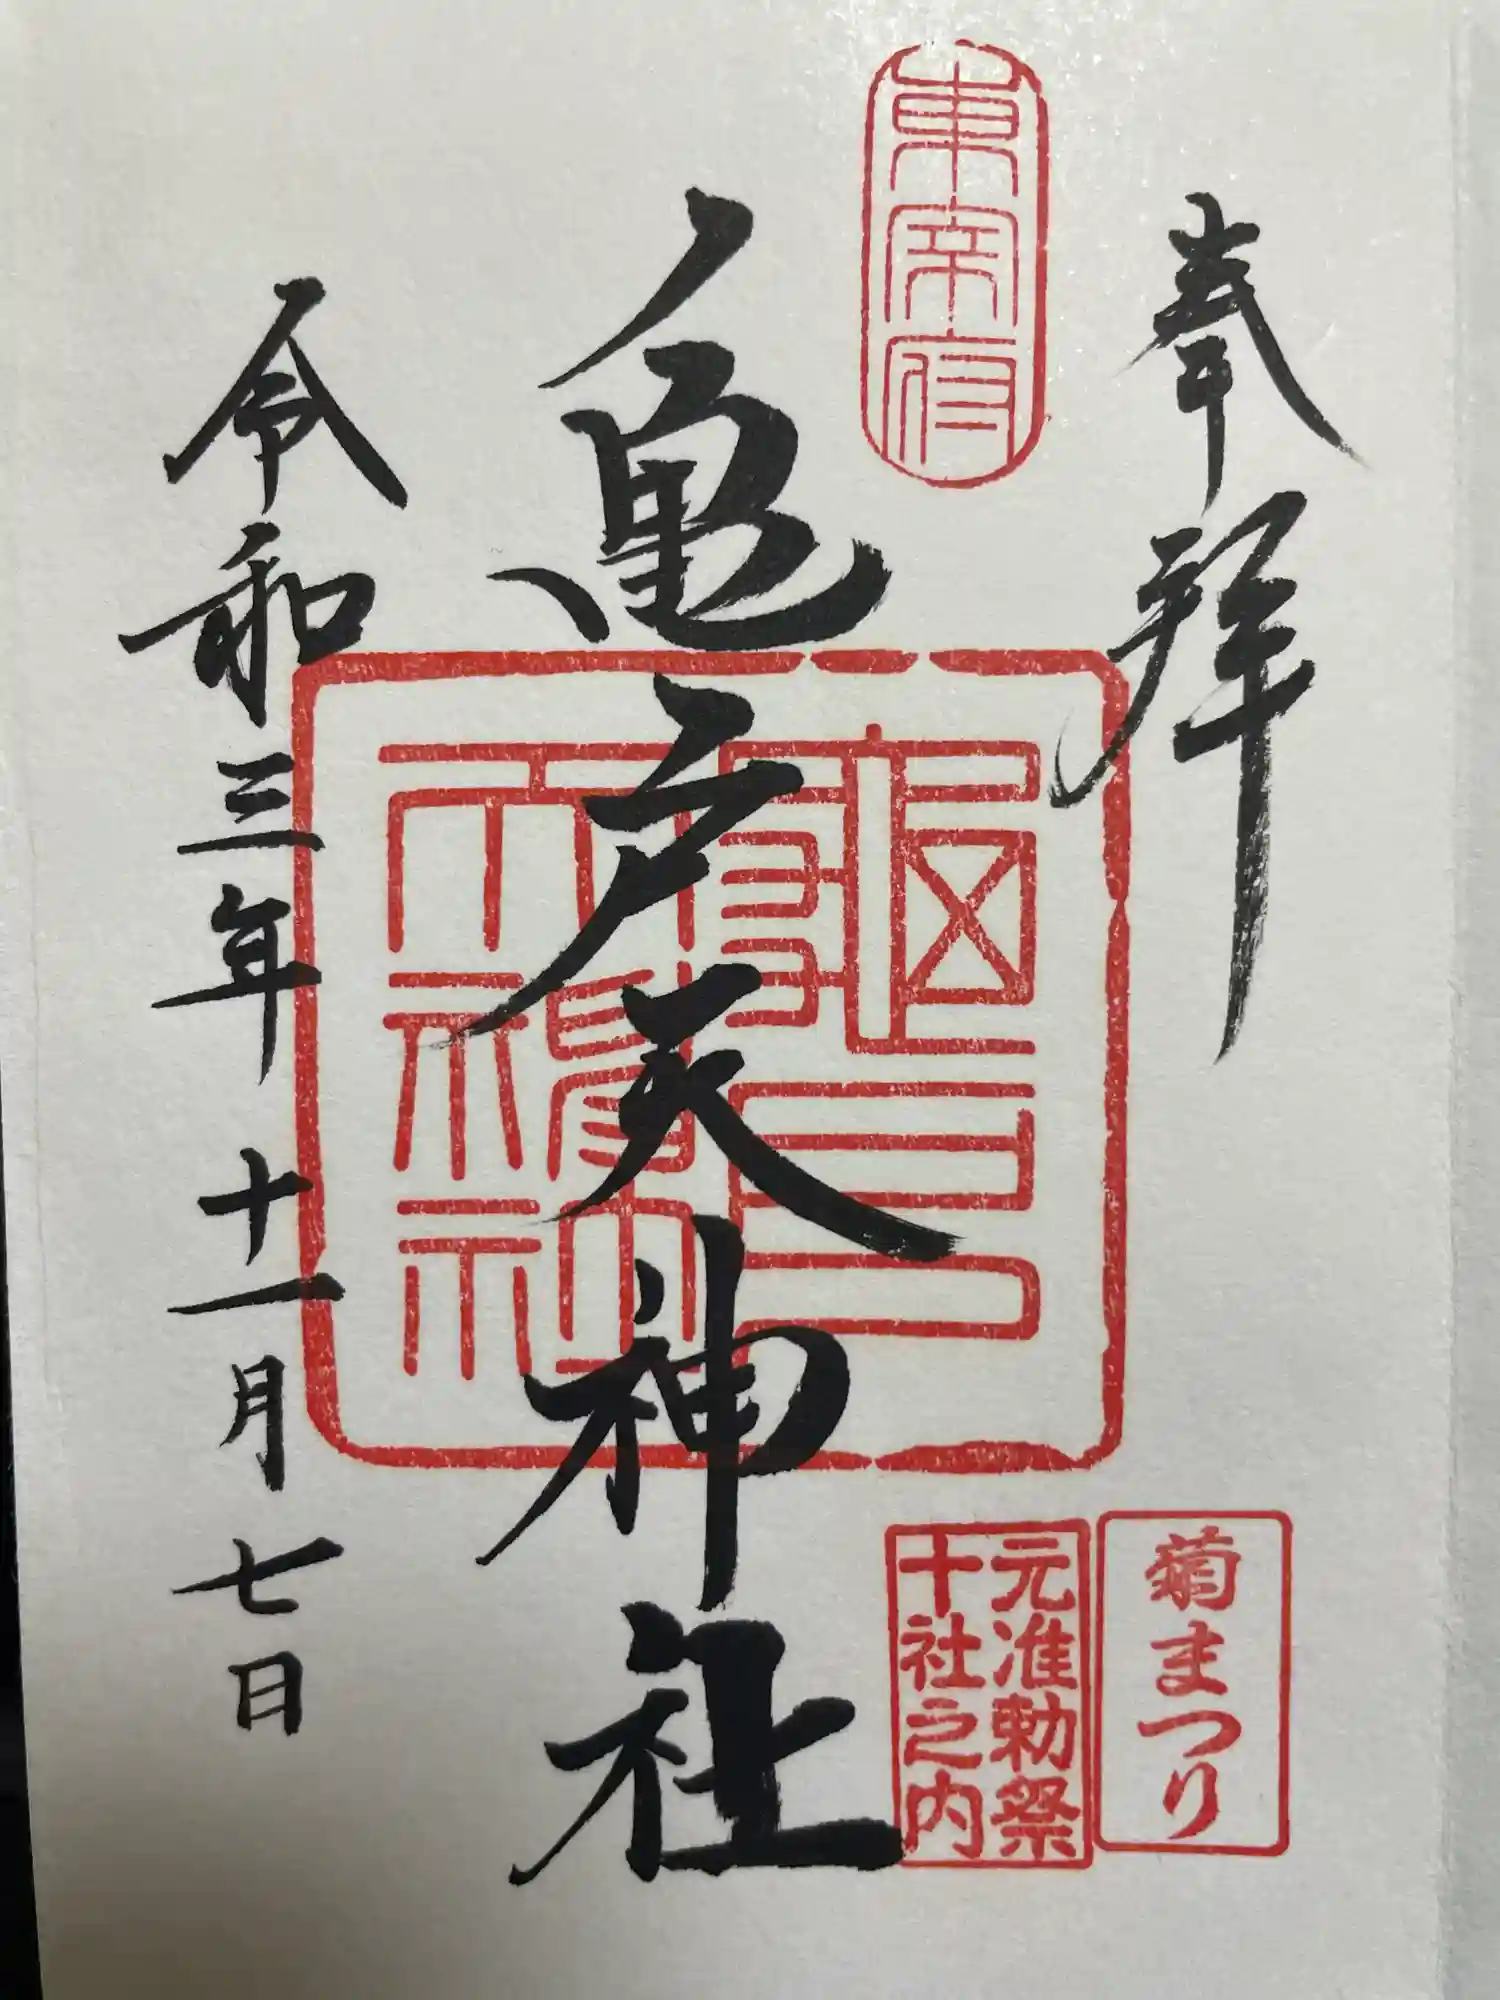 奉拝
東宰府
亀戸天神社
令和三年十一月七日
菊まつり
元准勅祭
十社之内